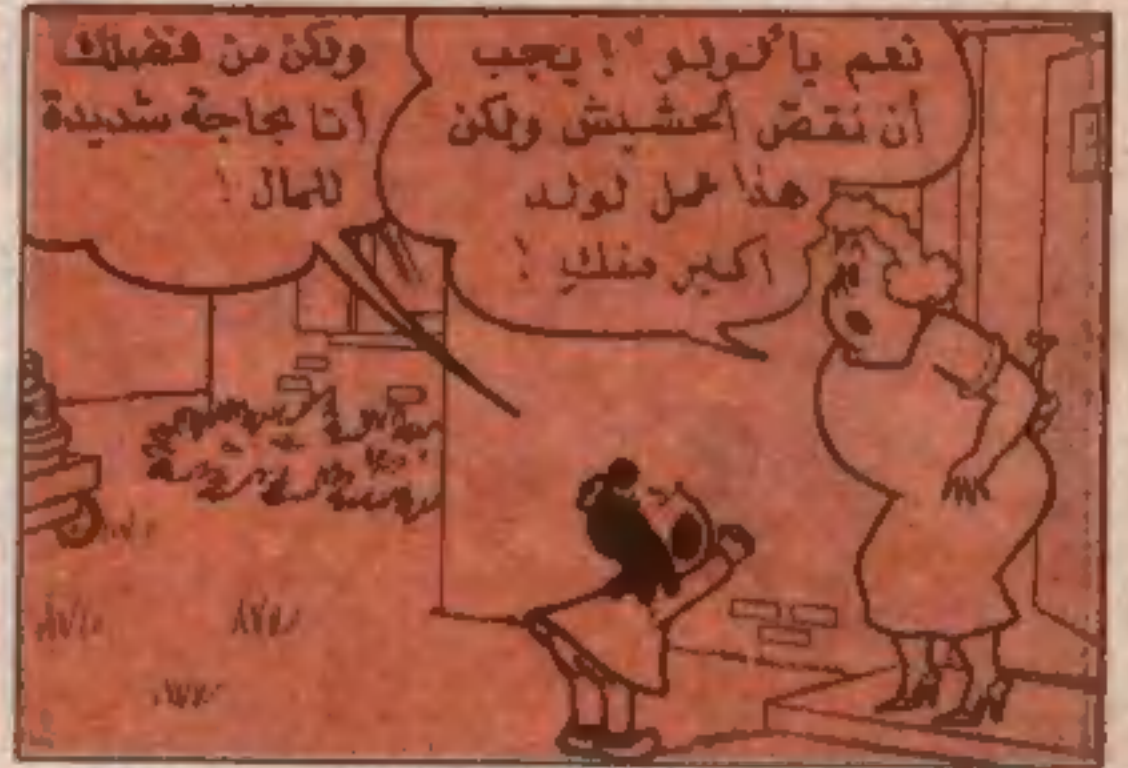 نعم يا "لولو"! يجب
أن نقصّ الحشيش ولكن
هذا عمل لولد
أكبر منكِ !
ولكن من فضلك
أنا بحاجة شديدة
للمال !